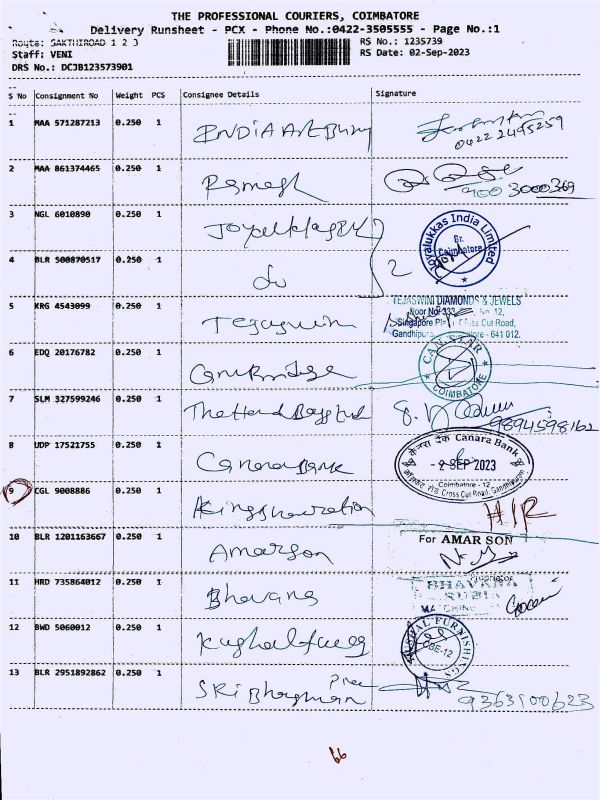 THE PROFESSIONAL COURIERS, COIMBATORE
Delivery Runsheet - PCX - Phone No.:0422-3505555 - Page No.:1
Route: SAKTHIROAD 1 2 3
RS No.: 1235739
Staff: VENI
RS Date: 02-Sep-2023
DRS No.: DCJB123573901
S No Consignment No Weight PCS Consignee Details Signature
1 MAA 571287213 0.250 1
0422 2495259
2 MAA 861374465 0.250 1 Ramesh
900 3000 369
3 NGL 6010890 0.250 1
Joyalukkas India Limited
Br.
Coimbatore
4 BLR 500870517 0.250 1 do 2
TEJASWINI DIAMONDS & JEWELS
Door No 333, No 12,
5 KRG 4543099 0.250 1
Singapore Cross Cut Road,
Gandhipuram - 641 012.
6 EDQ 20176782 0.250 1 Cambridge
CAN STAR
COIMBATORE
7 SLM 327599246 0.250 1
9894598162
8 UDP 17521755 0.250 1 Canara Bank
केनरा बैंक Canara Bank
- 2 SEP 2023
Coimbatore - 12
Cross Cut Road, Gandhipuram
9 CGL 9008886 0.250 1 H/R
10 BLR 1201163667 0.250 1 Amarson
For AMAR SON
Proprietor
11 HRD 735864012 0.250 1 Bhavana
BHAVANA
MATCHING
12 BWD 5060012 0.250 1
KUSHAL FURNISHINGS
CBE-12
13 BLR 2951892862 0.250 1 SRi Bhagavan
9363100623